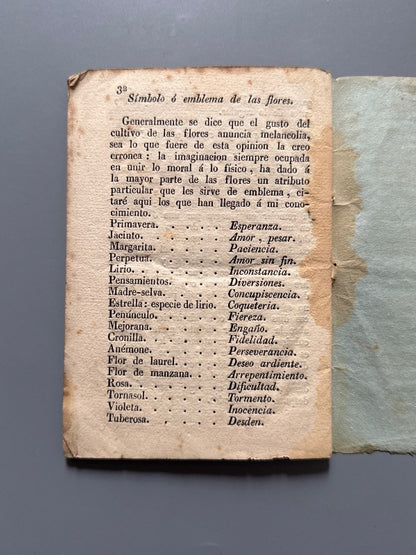 3ª
Símbolo ó emblema de las flores.
Generalmente se dice que el gusto del
cultivo de las flores anuncia melancolia,
sea lo que fuere de esta opinion la creo
erronea: la imaginacion siempre ocupada
en unir lo moral á lo físico, ha dado á
la mayor parte de las flores un atributo
particular que les sirve de emblema, ci-
taré aqui los que han llegado á mi cono-
cimiento.
Primavera. . . . . . Esperanza.
Jacinto. . . . . . Amor, pesar.
Margarita. . . . . . Paciencia.
Perpetua. . . . . . Amor sin fin.
Lirio. . . . . . . Inconstancia.
Pensamientos. . . . . Diversiones.
Madre-selva. . . . . Concupiscencia.
Estrella: especie de lirio. Coqueteria.
Penúnculo. . . . . . Fiereza.
Mejorana. . . . . . Engaño.
Cronilla. . . . . . Fidelidad.
Anémone. . . . . . Perseverancia.
Flor de laurel. . . . Deseo ardiente.
Flor de manzana. . . Arrepentimiento.
Rosa. . . . . . . Dificultad.
Tornasol. . . . . . Tormento.
Violeta. . . . . . Inocencia.
Tuberosa. . . . . . Desden.